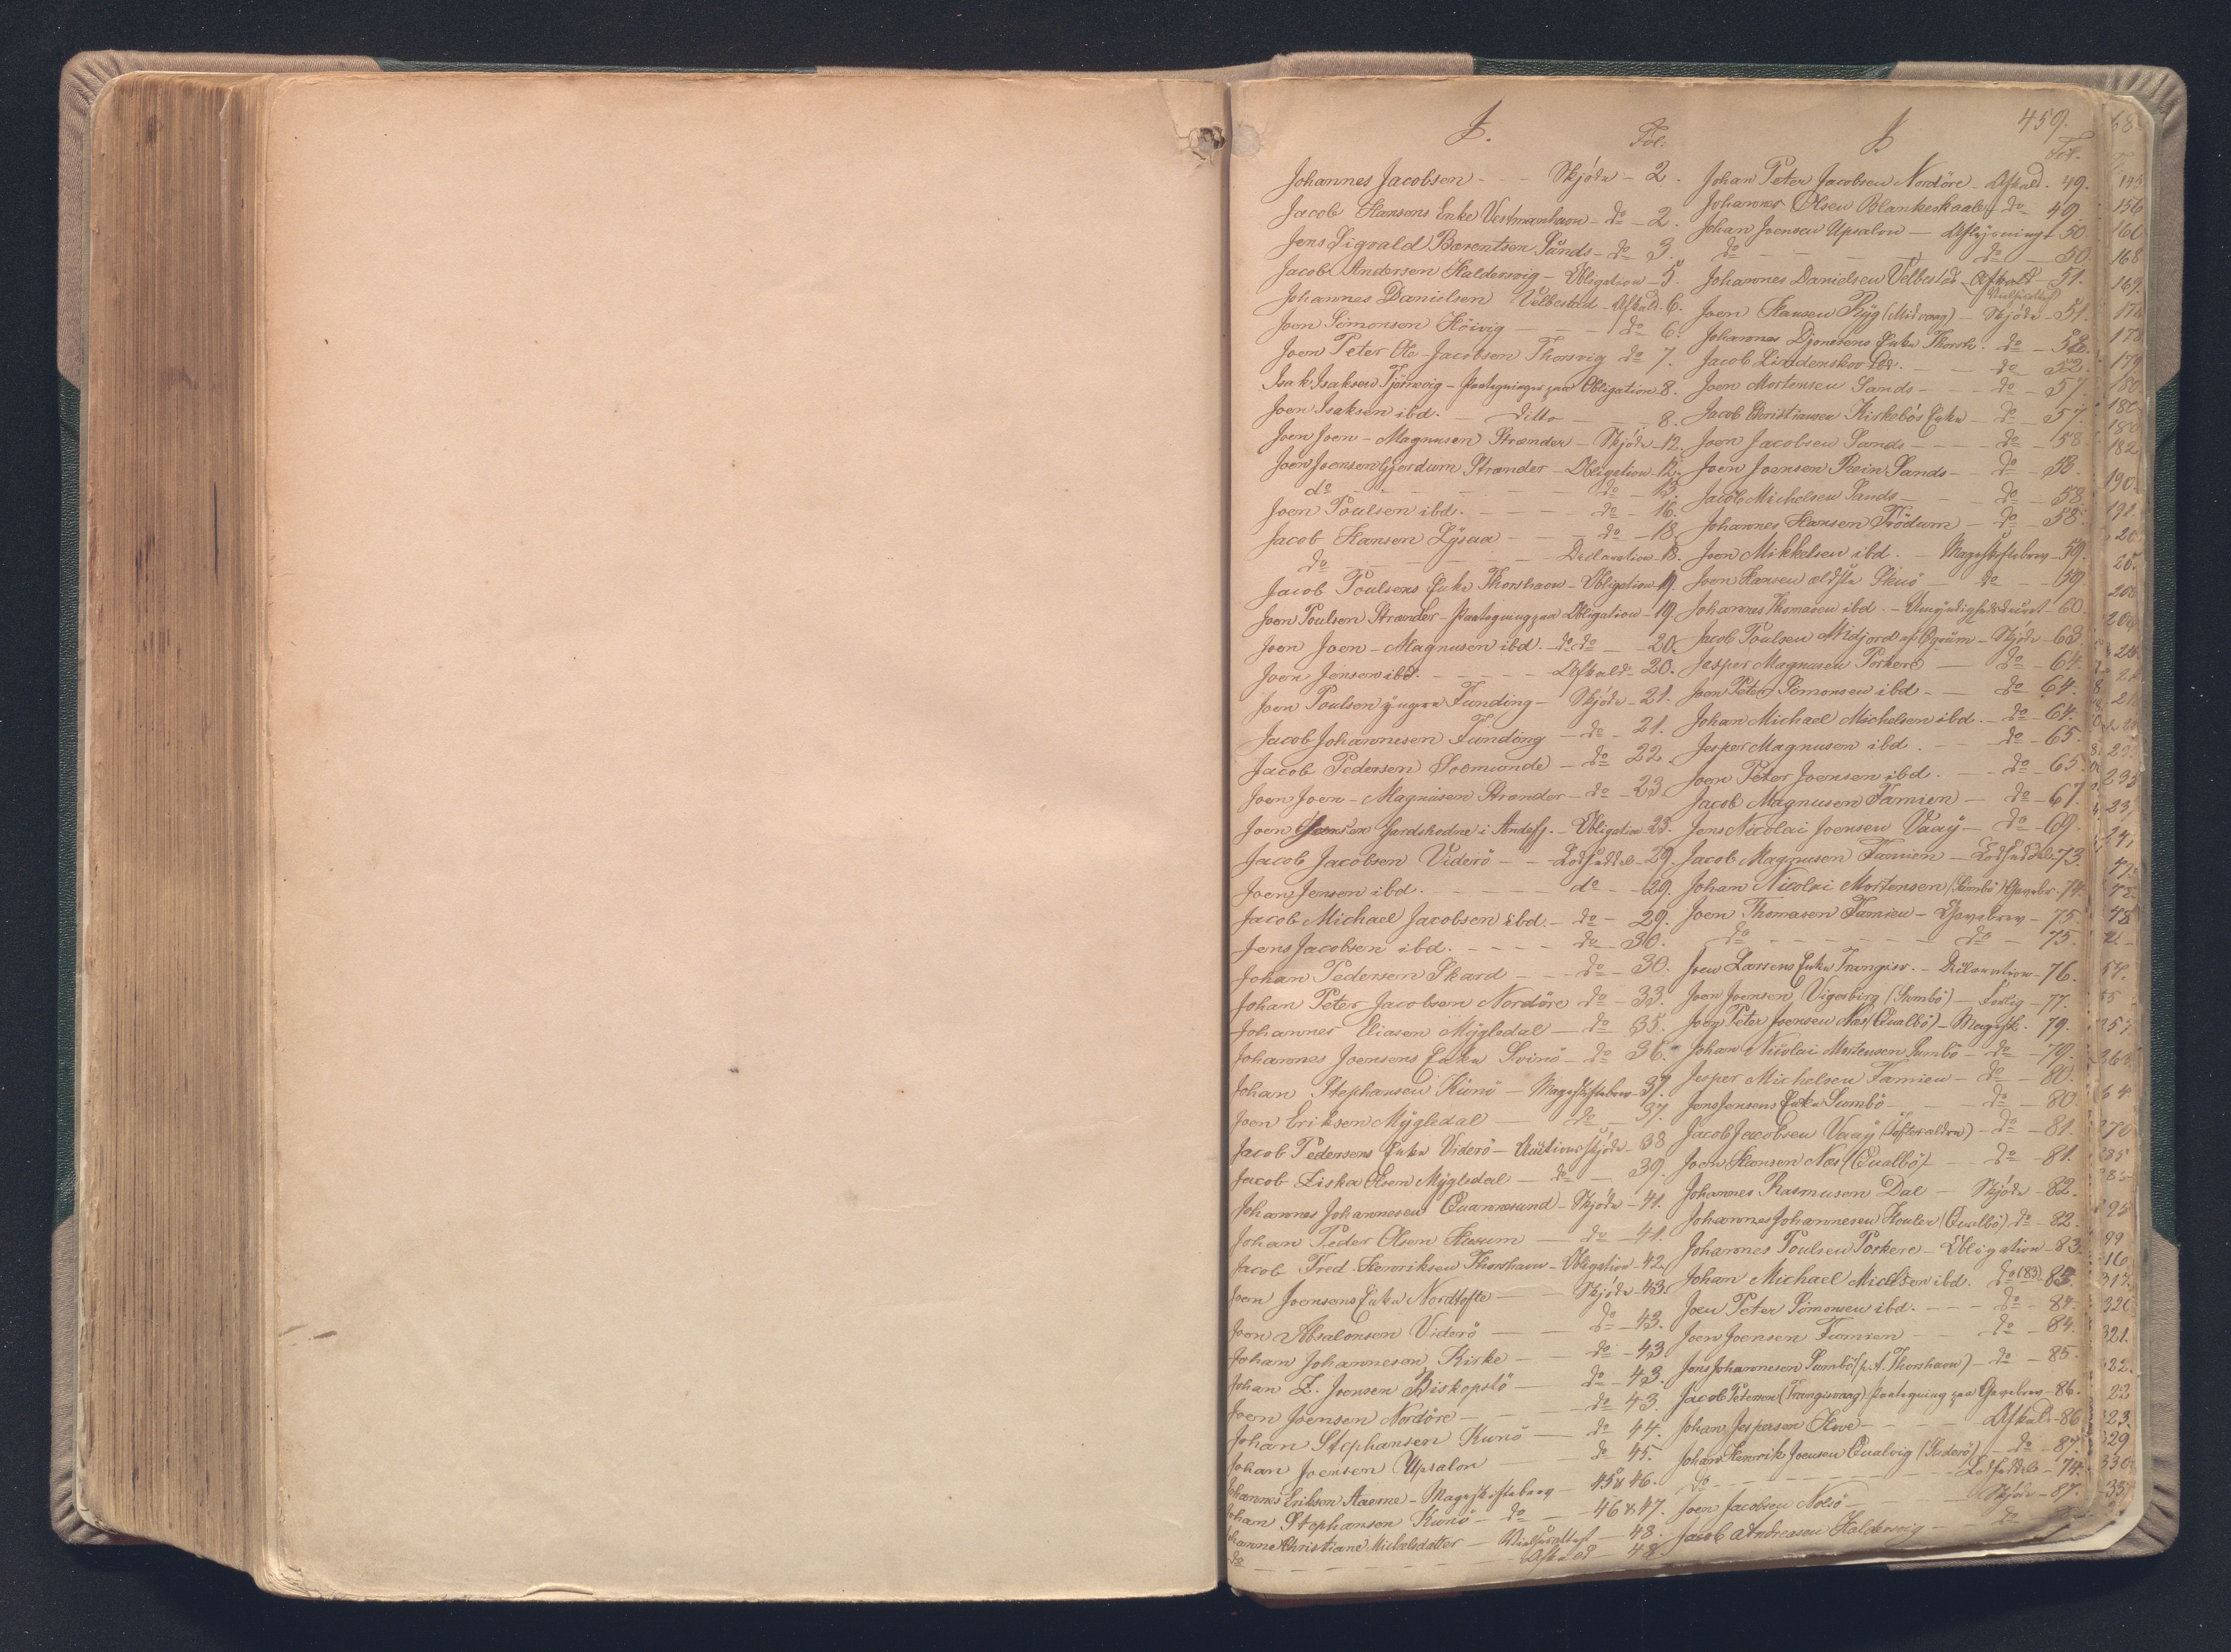 459.
J.
Fol:
Johannes Jacobsen - - Skjöde - 2.
Jacob Hansens Enke Vestmanhavn - do - 2.
Jens Sigvald Barentsen Sands - do 3.
Jacob Andersen Haldersvig - Obligation - 5.
Johannes Danielsen Velbestad - Afkald. 6.
Joen Simonsen Höivig - - do 6.
Joen Peter Ole-Jacobsen Thorsvig do 7.
Isak Isaksen Tjörnevig - Paategninger paa Obligation 8.
Joen Isaksen ibd. - ditto - - 8.
Joen Joen-Magnusen Strænder - Skjöde - 12.
Joen Joensen Gjerdum Strænder - Obligation - 12.
do - - - do - 13.
Joen Poulsen ibd. - - - do - 16.
Jacob Hansen Lysaa - - do - 18.
do - - - Declaration - 18.
Jacob Poulsens Enke Thorshavn - Obligation 19.
Joen Poulsen Strænder - Paategning paa Obligation - 19.
Joen Joen-Magnusen ibd. - do do - 20.
Joen Jensen ibd. - - - Afkald - 20.
Joen Poulsen yngre Funding - Skjöde - 21.
Jacob Johannesen Funding - do - 21.
Jacob Pedersen Soemunde - do 22.
Joen Joen-Magnusen Strænder - do - 23.
Joen Joensen Gardshodne i Andefj. - Obligation 23.
Jacob Jacobsen Viderö - - Lodseddel - 29.
Joen Jensen ibd. - - - do - 29.
Jacob Michael Jacobsen ibd. - do - 29.
Jens Jacobsen ibd. - - - do - 30.
Johan Pedersen Skard - - do - 30.
Johan Peter Jacobsen Nordöre do - 33.
Johannes Eliasen Mygledal - do 35.
Johannes Joensens Enke Svinö - do 36.
Johan Stephansen Kunö - Mageskiftebrev - 37.
Joen Eriksen Mygledal - do - 37.
Jacob Pedersens Enke Viderö - Auctionsskjöde - 38
Jacob Liska Olsen Mygledal - do - 39.
Johannes Johannesen Quannesund - Skjöde - 41.
Johan Peder Olsen Husum - do - 41.
Jacob Fred. Henriksen Thorshavn - Obligation - 42.
Joen Joensens Enke Nordtofte - Skjöde - 43.
Joen Absalonsen Viderö - - do - 43.
Johan Johannesen Kirke - do - 43.
Johan Z. Joensen Biskopstö - do - 43.
Joen Joensen Nordöre - - do 43.
Johan Stephansen Kunö - do 44.
Johan Joensen Upsalon - do 45.
Johannes Eriksen Aaerne - Mageskiftebrev - 45 & 46.
Johan Stephansen Kunö - do - 46 & 47.
Johanne Christiane Michelsdatter - - 48.
do - - - Afkald - 48.
J.
Fol.
Johan Peter Jacobsen Nordöre - Afkald. 49.
Johannes Olsen Blankeskaale - do 49
Johan Joensen Upsalon - 50.
do - - - do - 50.
Johannes Danielsen Velbestad - Afkald - 51.
Joen Hansen Ryg (Midvaag) - Skjöde - 51.
Johannes Djonesens Enke Thorsh. do - 52.
Jacob Lindenskov ibd. - - do 52.
Joen Mortensen Sands - - do - 57.
Jacob Christiansen Kirkebös Enke - do - 57.
Joen Jacobsen Sands - - - do - 58
Joen Joensen Rein Sands - - do - 58.
Jacob Michelsen Sands - - do - 58.
Johannes Hansen Trödum - do - 58.
Joen Mikkelsen ibd. - Mageskiftebrev - 59.
Joen Hansen ældste Skuö - do - 59.
Johannes Thomasen ibd. - - 60.
Jacob Poulsen Midjord af Øgrum - Skjöde - 63
Jesper Magnusen Porkere - do - 64.
Joen Peter Simonsen ibd. - - do 64.
Johan Michael Michelsen ibd. - do - 64.
Jesper Magnusen ibd. - - do - 65.
Joen Peter Joensen ibd. - - do - 65.
Jacob Magnusen Famien - do - 67.
Jens Nicolai Joensen Vaag - do - 69.
Jacob Magnusen Famien - Lodseddel 73.
Johan Nicolai Mortensen (Sumbö) Gavebr. 74.
Joen Thomasen Famien - Gavebrev - 75.
do - - - do - 75.
Joen Larsens Enke Trangisv. - Declaration - 76.
Joen Joensen Vigerbirg (Sumbö) - Forlig - 77.
Joen Peter Joensen Næs (Qualbö) - Magesk. 79.
Johan Nicolai Mortensen Sumbö - do - 79.
Jesper Michelsen Famien - do - 80.
Jens Jensens Enke Sumbö - - do - 80
Jacob Jacobsen Vaag - do - 81.
Joen Hansen Næs (Qualbö) - - do - 81.
Johannes Rasmusen Dal - Skjöde - 82.
Johannes Johannesen Houler (Qualbö) do - 82.
Johannes Poulsen Porkere - Obligation - 83.
Johan Michael Mich'sen ibd. do (83) 83.
Joen Peter Simonsen ibd. - - do - 84.
Joen Joensen Famien - - do - 84.
Jens Johannesen Sumbö (p.t. Thorshavn) - do - 85.
Jacob Petersen (Trangisvaag) Paategning paa Gavebrev - 86.
Johan Jespersen Hove - - - Afkald - 86
Johan Henrik Joensen Qualvig (Suderö) - do - 87.
do - - - Lodseddel - 74.
Joen Jacobsen Nolsö - - Skjöde - 87.
Jacob Andreasen Haldersvig - do